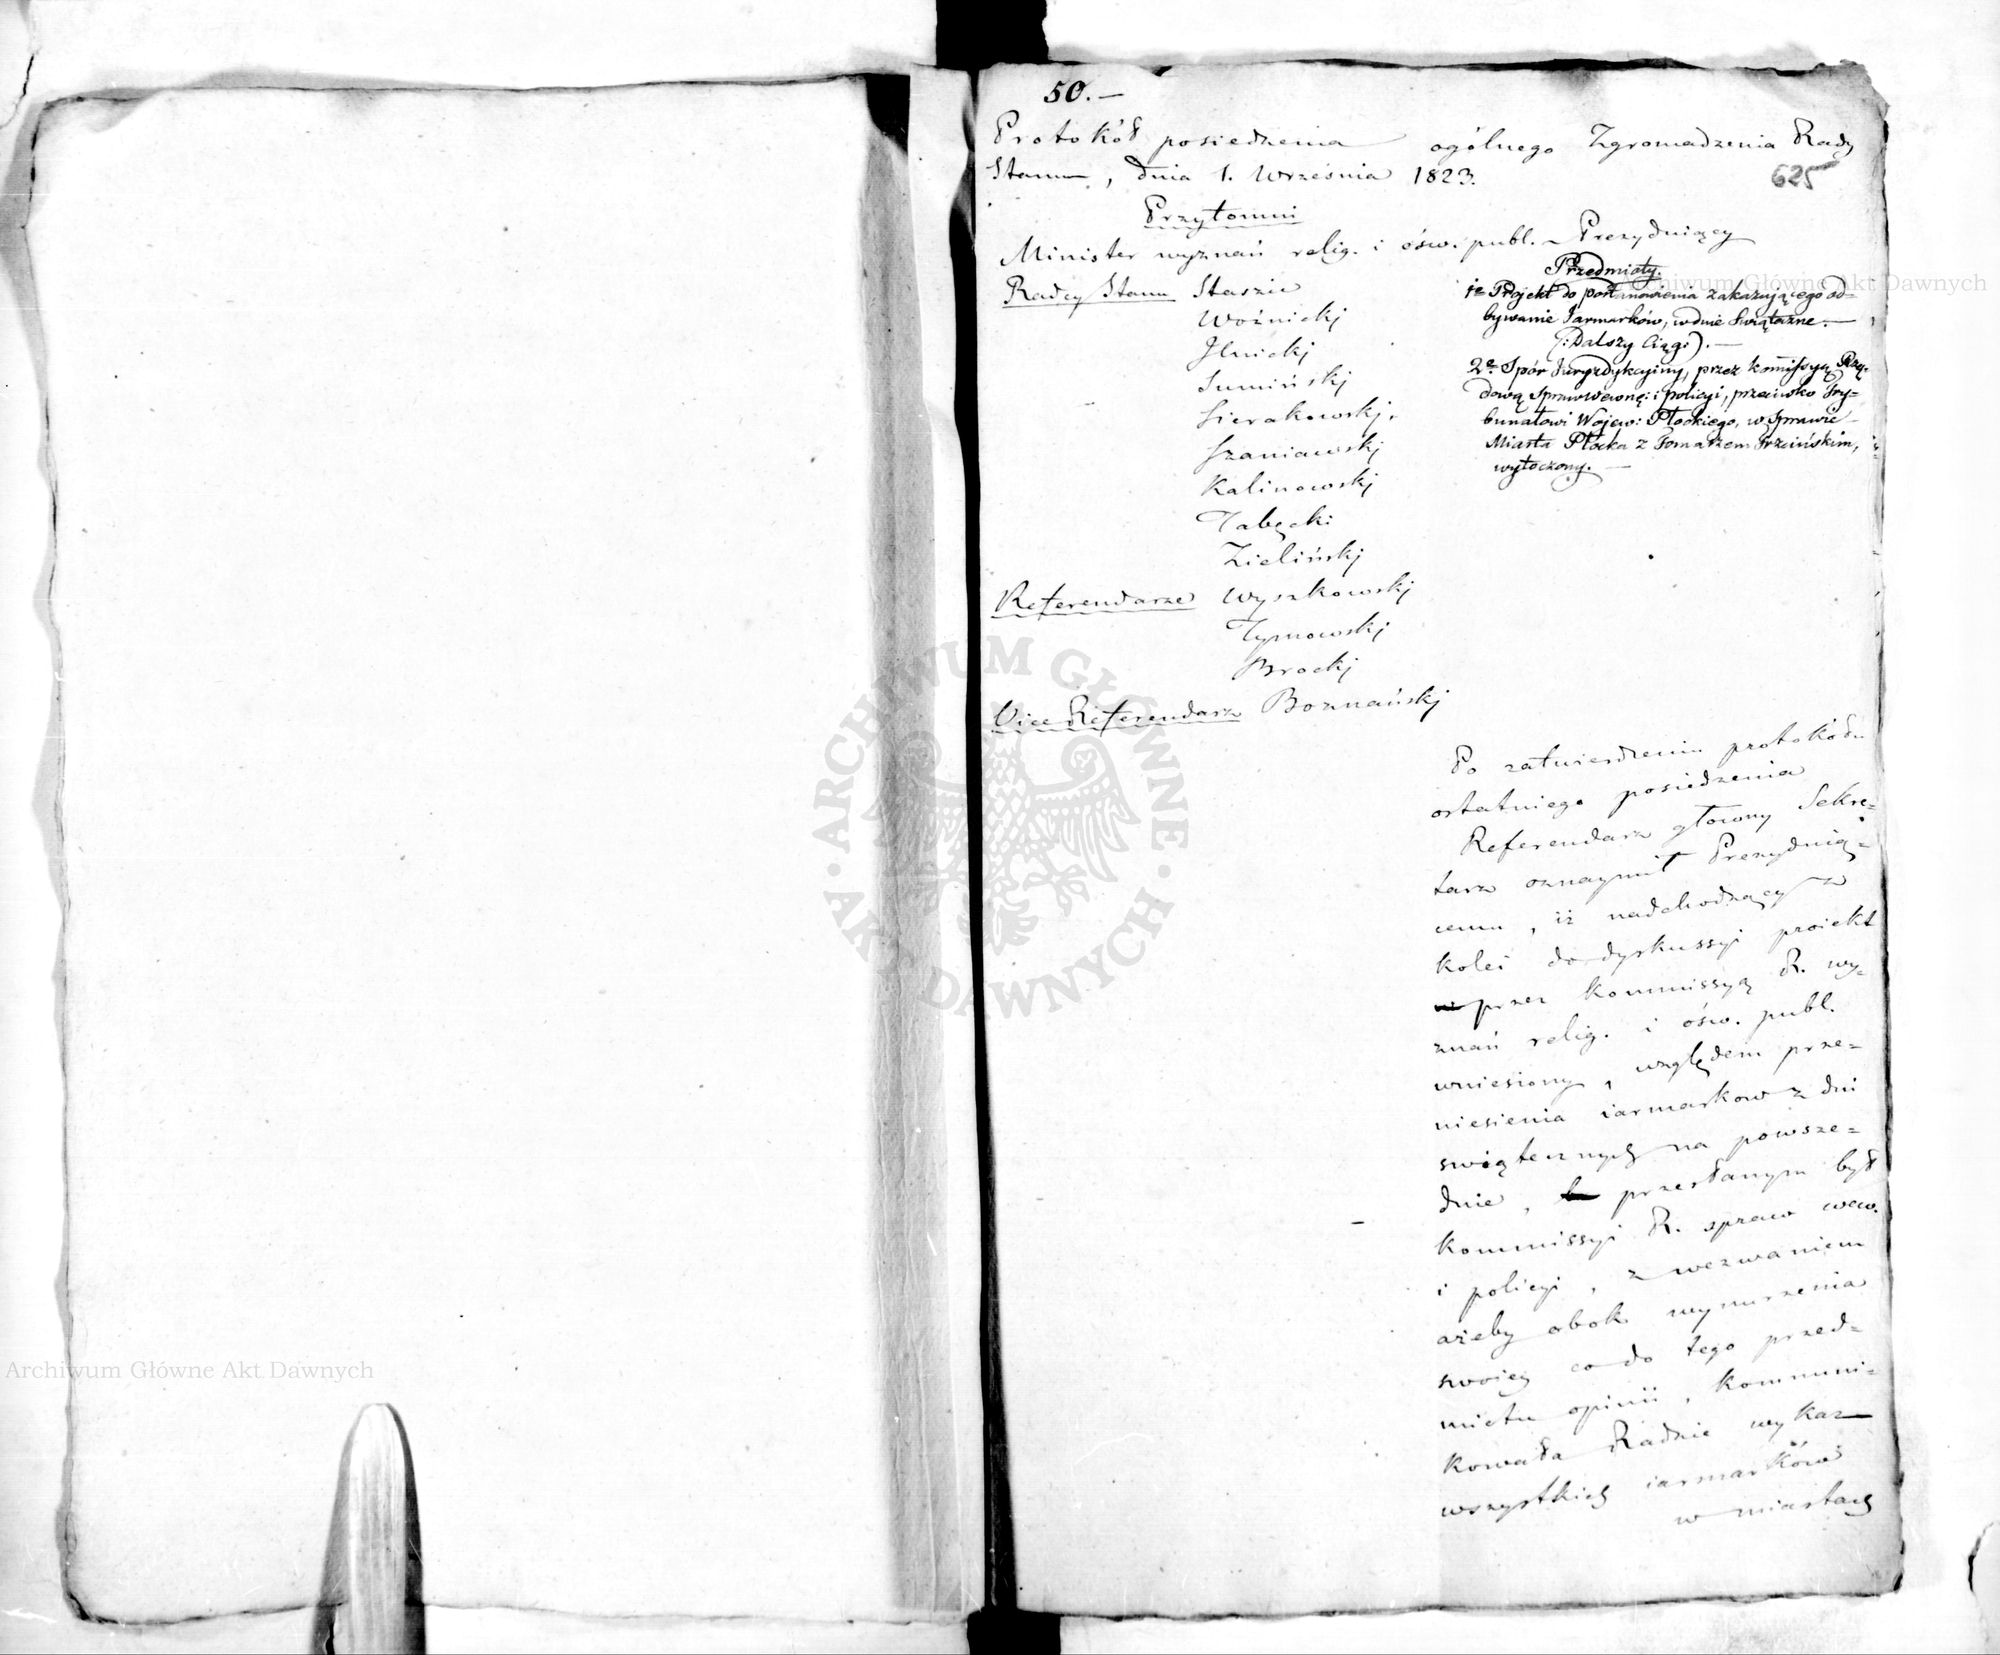 50.—
Protokół posiedzenia ogólnego Zgromadzenia Rady
Stanu, dnia 1. Września 1823.
625
Przytomni
Minister wyznań relig. i ośw. publ. – Prezyduiący
Radcy Stanu Staszic
Woźnickj
Ilnickj
Sumińskj
Sierakowskj.
Szaniawskj
Kalinowskj
Zabęcki
Zielińskj
Referendarze Wyszkowskj
Tymowskj
Brockj
Vice Referendarz Boznańskj
Przedmioty.
1e Projekt do postanowienia zakazującego od=
bywanie Jarmarków, w dnie Swiąteczne. —
/: Dalszy Ciąg :). —
2e. Spór Juryzdykcyiny, przez Kommissyą Rzą=
dową Spraw Wewnę: i policyi, przeciwko Try=
bunałowi Wojew: Płockiego, w Sprawie
Miasta Płocka z Tomaszem Trzcińskim,
wytoczony. —
Po zatwierdzeniu protokółu
ostatniego posiedzenia
Referendarz głowny Sekre=
tarz oznaymił Prezyduią=
cemu, iż nadchodzący z
kolei do dyskussyi proiekt
przez Kommissyą R. wy=
znań relig. i ośw. publ.
wniesiony, względem prze=
niesienia iarmarkow z dni
swiątecznych na powsze=
dnie, przesłanym był
Kommissyi R. spraw wew.
i policyi, z wezwaniem
ażeby obok wynurzenia
swoiey co do tego przed=
miotu opinii, kommuni=
kowała Radzie wykaz
wszystkich iarmarków
w miastach
Archiwum Główne Akt Dawnych
Archiwum Główne Akt Dawnych
ARCHIWUM GŁÓWNE · AKT DAWNYCH ·